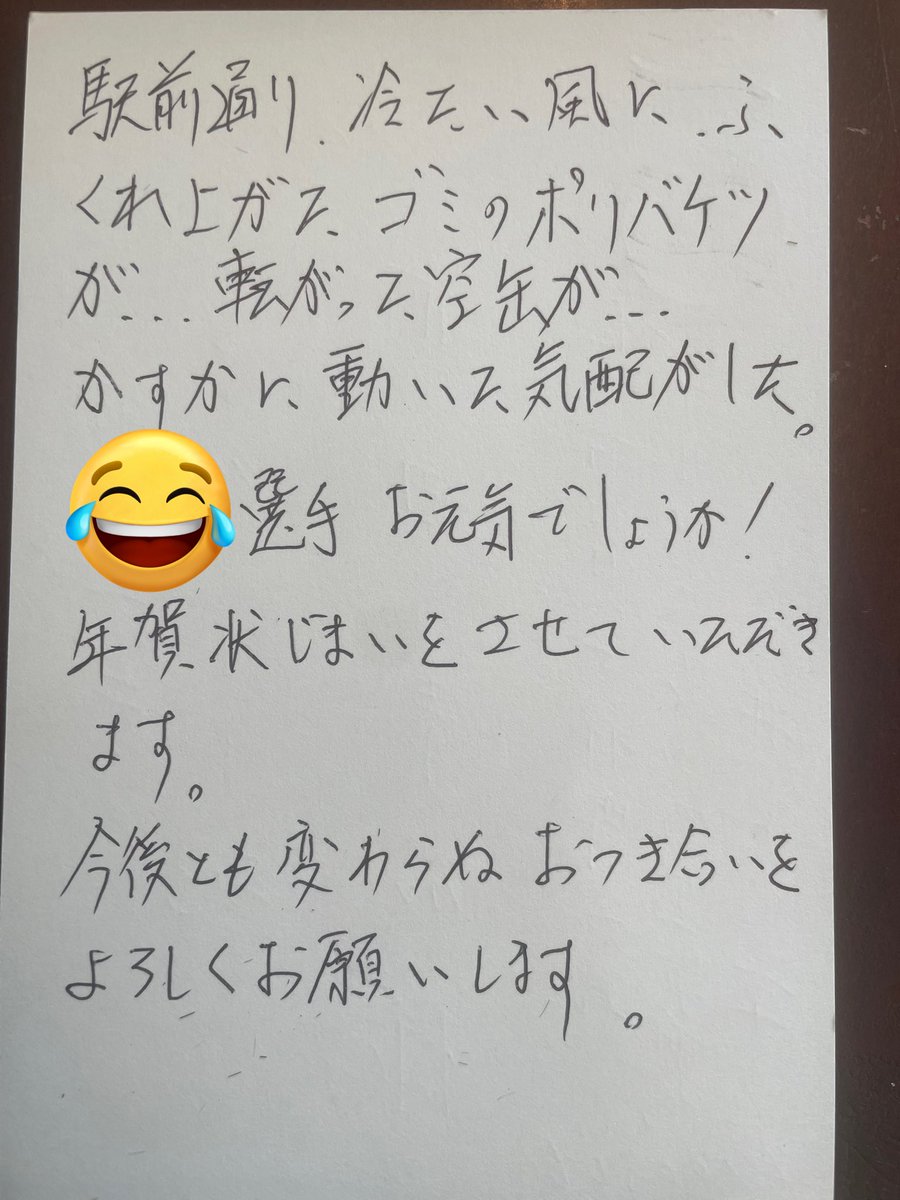 駅前通り、冷たい風に、ふ
くれ上がた、ゴミのポリバケツ
が...転がった空缶が...
かすかに動いた気配がした。
選手 お元気でしょうか!
年賀状じまいをさせていただき
ます。
今後とも変わらぬおつき合いを
よろしくお願いします。